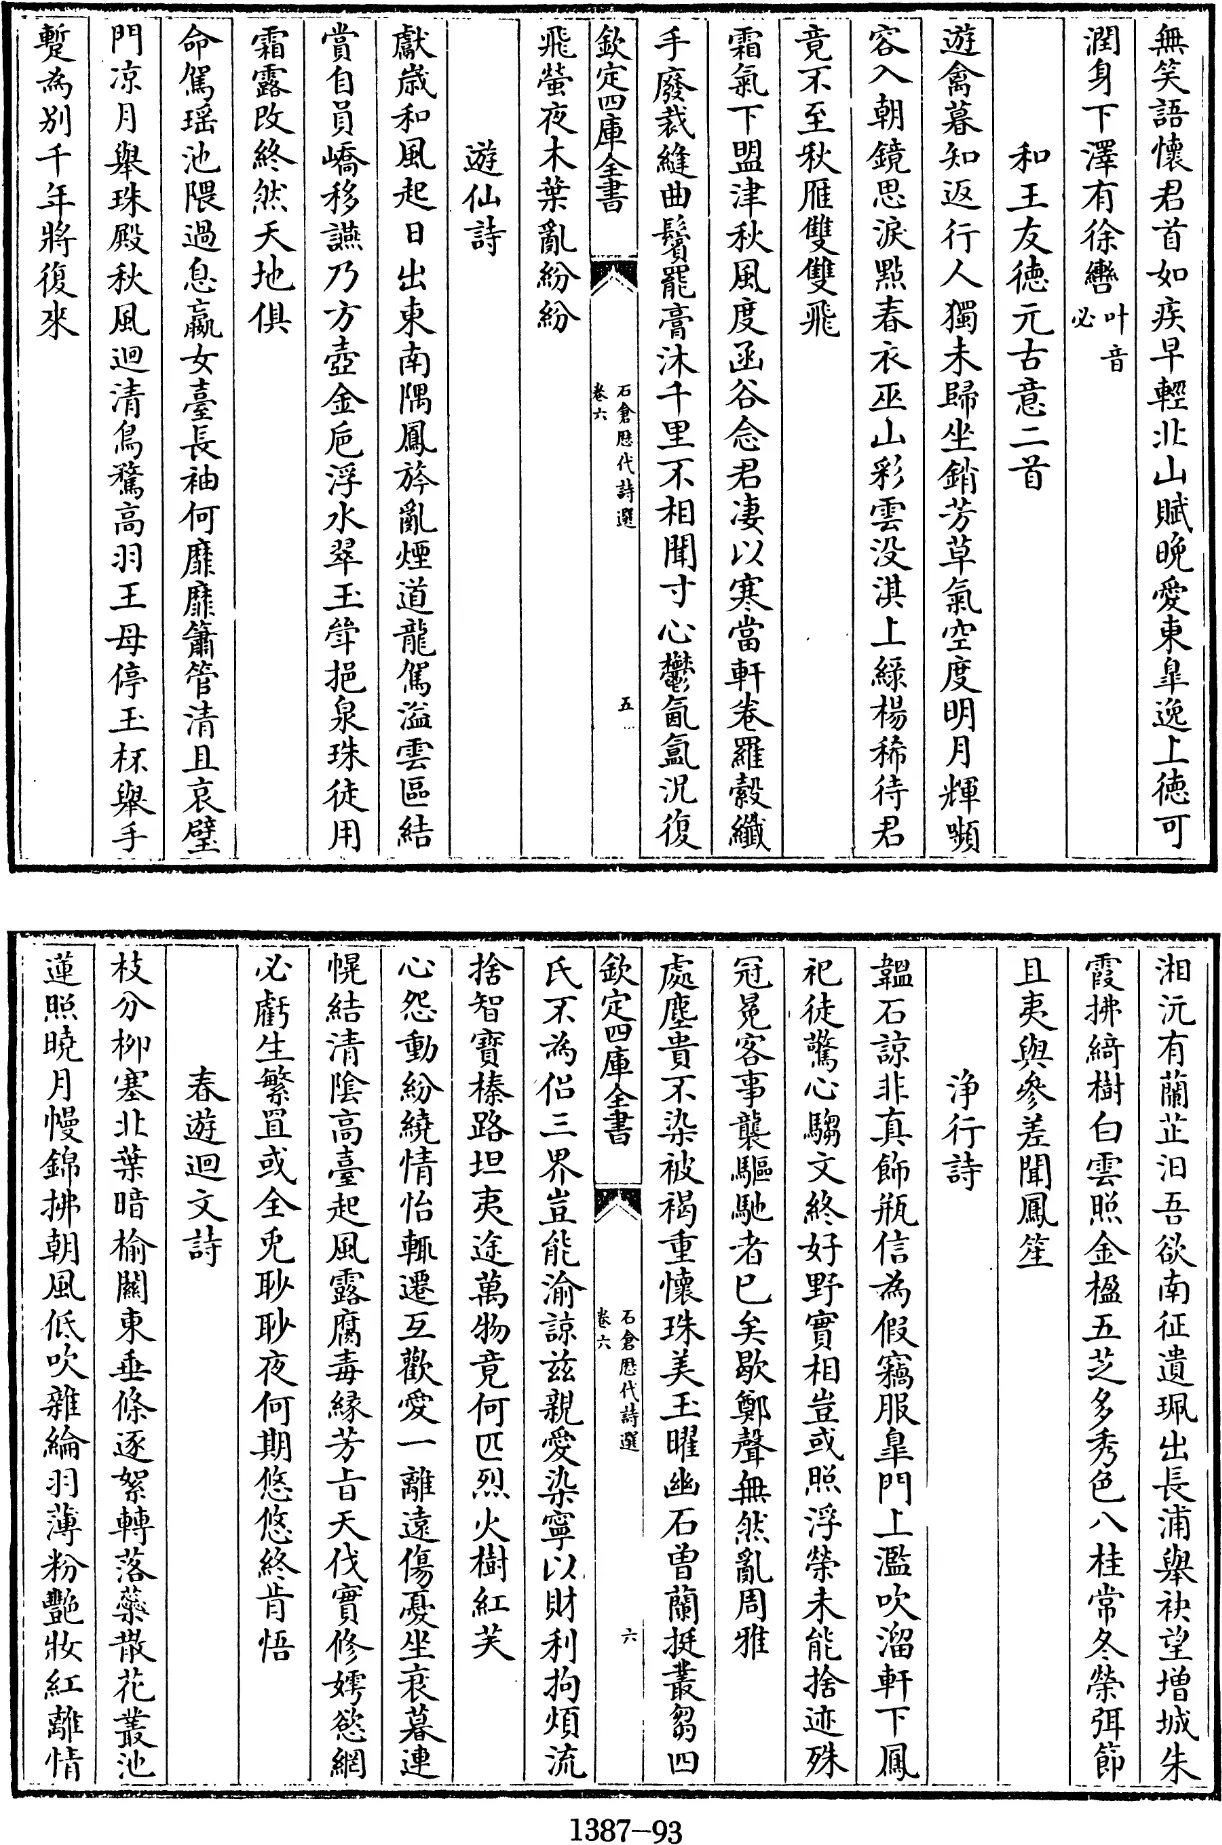 無笑語懷君首如疾早輕北山賦晚愛東臯逸上徳可
潤身下澤有徐轡叶音必
和王友徳元古意二首
遊禽暮知返行人獨未歸坐銷芳草氣空度明月輝嚬
容入朝鏡思淚點春衣巫山彩雲没淇上緑楊稀待君
竟不至秋雁雙雙飛
霜氣下盟津秋風度函谷念君凄以寒當軒卷羅縠纖
手廢裁縫曲鬢罷膏沐千里不相聞寸心鬱氤氲況復
欽定四庫全書
石倉歷代詩選
卷六
五
飛螢夜木葉亂紛紛
遊仙詩
獻歳和風起日出東南隅鳳旍亂煙道龍駕溢雲區結
賞自員嶠移讌乃方壺金巵浮水翠玉斝挹泉珠徒用
霜露改終然天地俱
命駕瑶池隈過息嬴女臺長袖何靡靡簫管清且哀璧
門凉月舉珠殿秋風迴清鳥騖高羽王母停玉杯舉手
蹔為别千年將復來
湘沅有蘭芷汨吾欲南征遺珮出長浦舉袂望增城朱
霞拂綺樹白雲照金楹五芝多秀色八桂常冬榮弭節
且夷與參差聞鳳笙
浄行詩
韞石諒非真飾瓶信為假竊服臯門上濫吹溜軒下鳳
祀徒驚心騶文終好野實相豈或照浮榮未能捨迹殊
冠冕客事襲驅馳者已矣歇鄭聲無然亂周雅
處塵貴不染被褐重懷珠美玉曜幽石曽蘭挺叢芻四
欽定四庫全書
石倉歷代詩選
卷六
六
氏不為侣三界豈能渝諒兹親愛染寧以財利拘煩流
捨智寳榛路坦夷途萬物竟何匹烈火樹紅芙
心怨動紛繞情怡輒遷互歡愛一離逺傷憂坐衰暮連
幌結清隂高臺起風露腐毒縁芳㫖天伐實修嫮慾網
必虧生繁罝或全兎耿耿夜何期悠悠終肯悟
春遊迴文詩
枝分柳塞北葉暗榆關東垂條逐絮轉落蘂散花叢池
蓮照曉月幔錦拂朝風低吹雜綸羽薄粉艶妝紅離情
1387-93